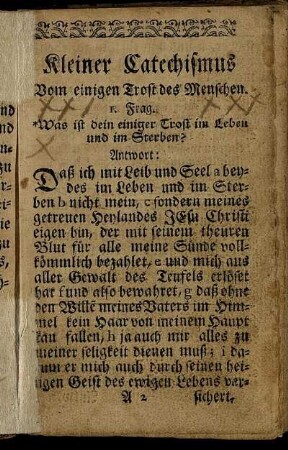 Kleiner Catechismus
Vom einigen Trost des Menschen.
1. Frag.
*Was ist dein einiger Trost im Leben
und im Sterben?
Antwort:
Daß ich mit Leib und Seel a bey-
des im Leben und im Ster-
ben b nicht mein, c sondern meines
getreuen Heylandes JEsu Christi
eigen bin, der mit seinem theuren
Blut für alle meine Sünde voll-
kömmlich bezahlet, e und mich aus
aller Gewalt des Teufels erlöset
hat f und also bewahret, g daß ohne
den Wille meines Vaters im Him-
mel kein Haar von meinem Haupt
kan fallen, h ja auch mir alles zu
meiner seligkeit dienen muß; i da-
rum er mich auch durch seinen hei-
ligen Geist des ewigen Lebens ver-
A 2 sichert,